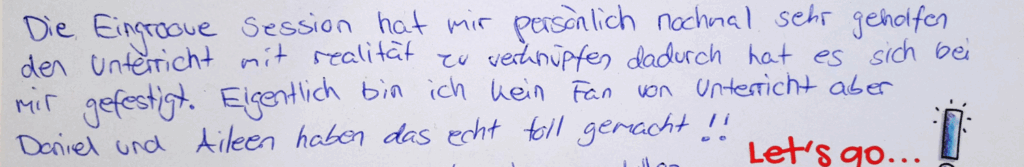 Die Eingroove Session hat mir persönlich nochmal sehr geholfen
den Unterricht mit realität zu verknüpfen dadurch hat es sich bei
mir gefestigt. Eigentlich bin ich kein Fan von Unterricht aber
Daniel und Aileen haben das echt toll gemacht!!
Let's go...